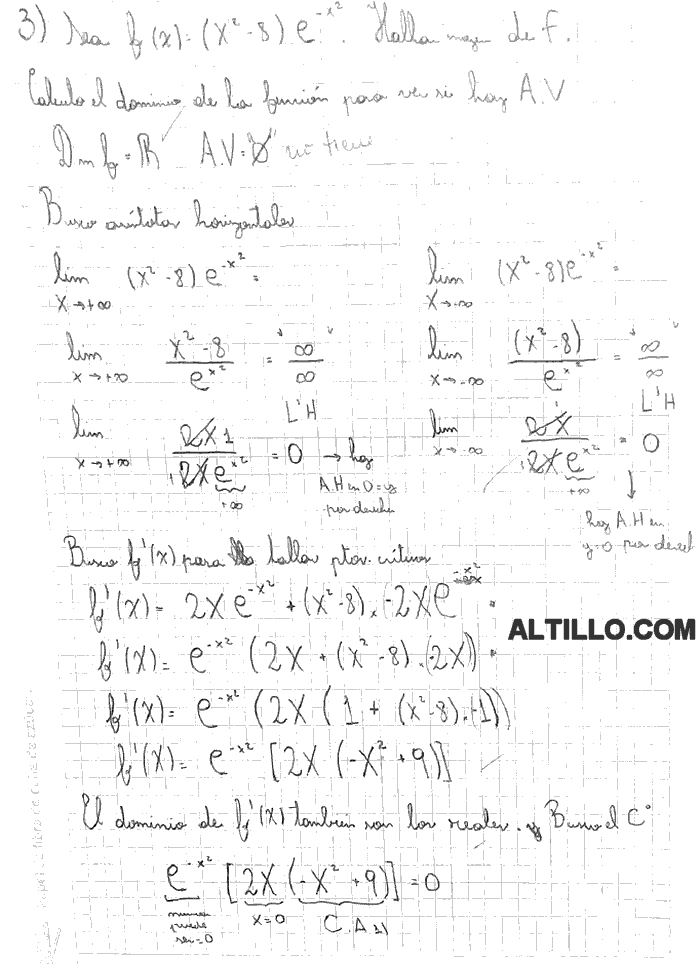 3) Sea f(x) = (x² - 8) e^-x². Hallar imagen de f.
Calculo el dominio de la función para ver si hay A.V
Dm f = ℝ A.V = ∅ no tiene
Busco asíntotas horizontales
lim x→+∞ (x² - 8) e^-x² =
lim x→-∞ (x² - 8) e^-x² =
lim x→+∞ (x² - 8)/e^x² = "∞/∞"
lim x→-∞ (x² - 8)/e^x² = "∞/∞"
L'H
L'H
lim x→+∞ 2x 1/2x e^x² = 0 → hay
lim x→-∞ 2x/2x e^x² = 0
+∞
A.H en 0 = y
por derecha
+∞
hay A.H en
y=0 por
Busco f'(x) para hallar ptos. críticos
f'(x) = 2x e^-x² + (x² - 8) . -2x e^-x² =
ALTILLO.COM
f'(x) = e^-x² (2x + (x² - 8) . (-2x)) =
f'(x) = e^-x² (2x (1 + (x² - 8) . (-1)))
f'(x) = e^-x² [2x (-x² + 9)]
El dominio de f'(x) también son los reales. y Busco el C°
e^-x² [2x (-x² + 9)] = 0
nunca
puede
ser = 0
x = 0
C.A 1)